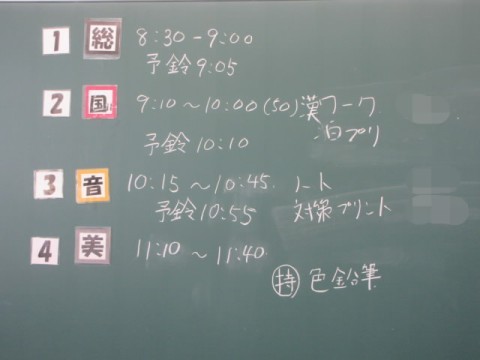 1 総 8:30-9:00
予鈴9:05
2 国 9:10~10:00(50)漢ワーク
予鈴10:10 泊プリ
3 音 10:15~10:45. ノート
予鈴10:55 対策プリント
4 美 11:10~11:40
持 色鉛筆